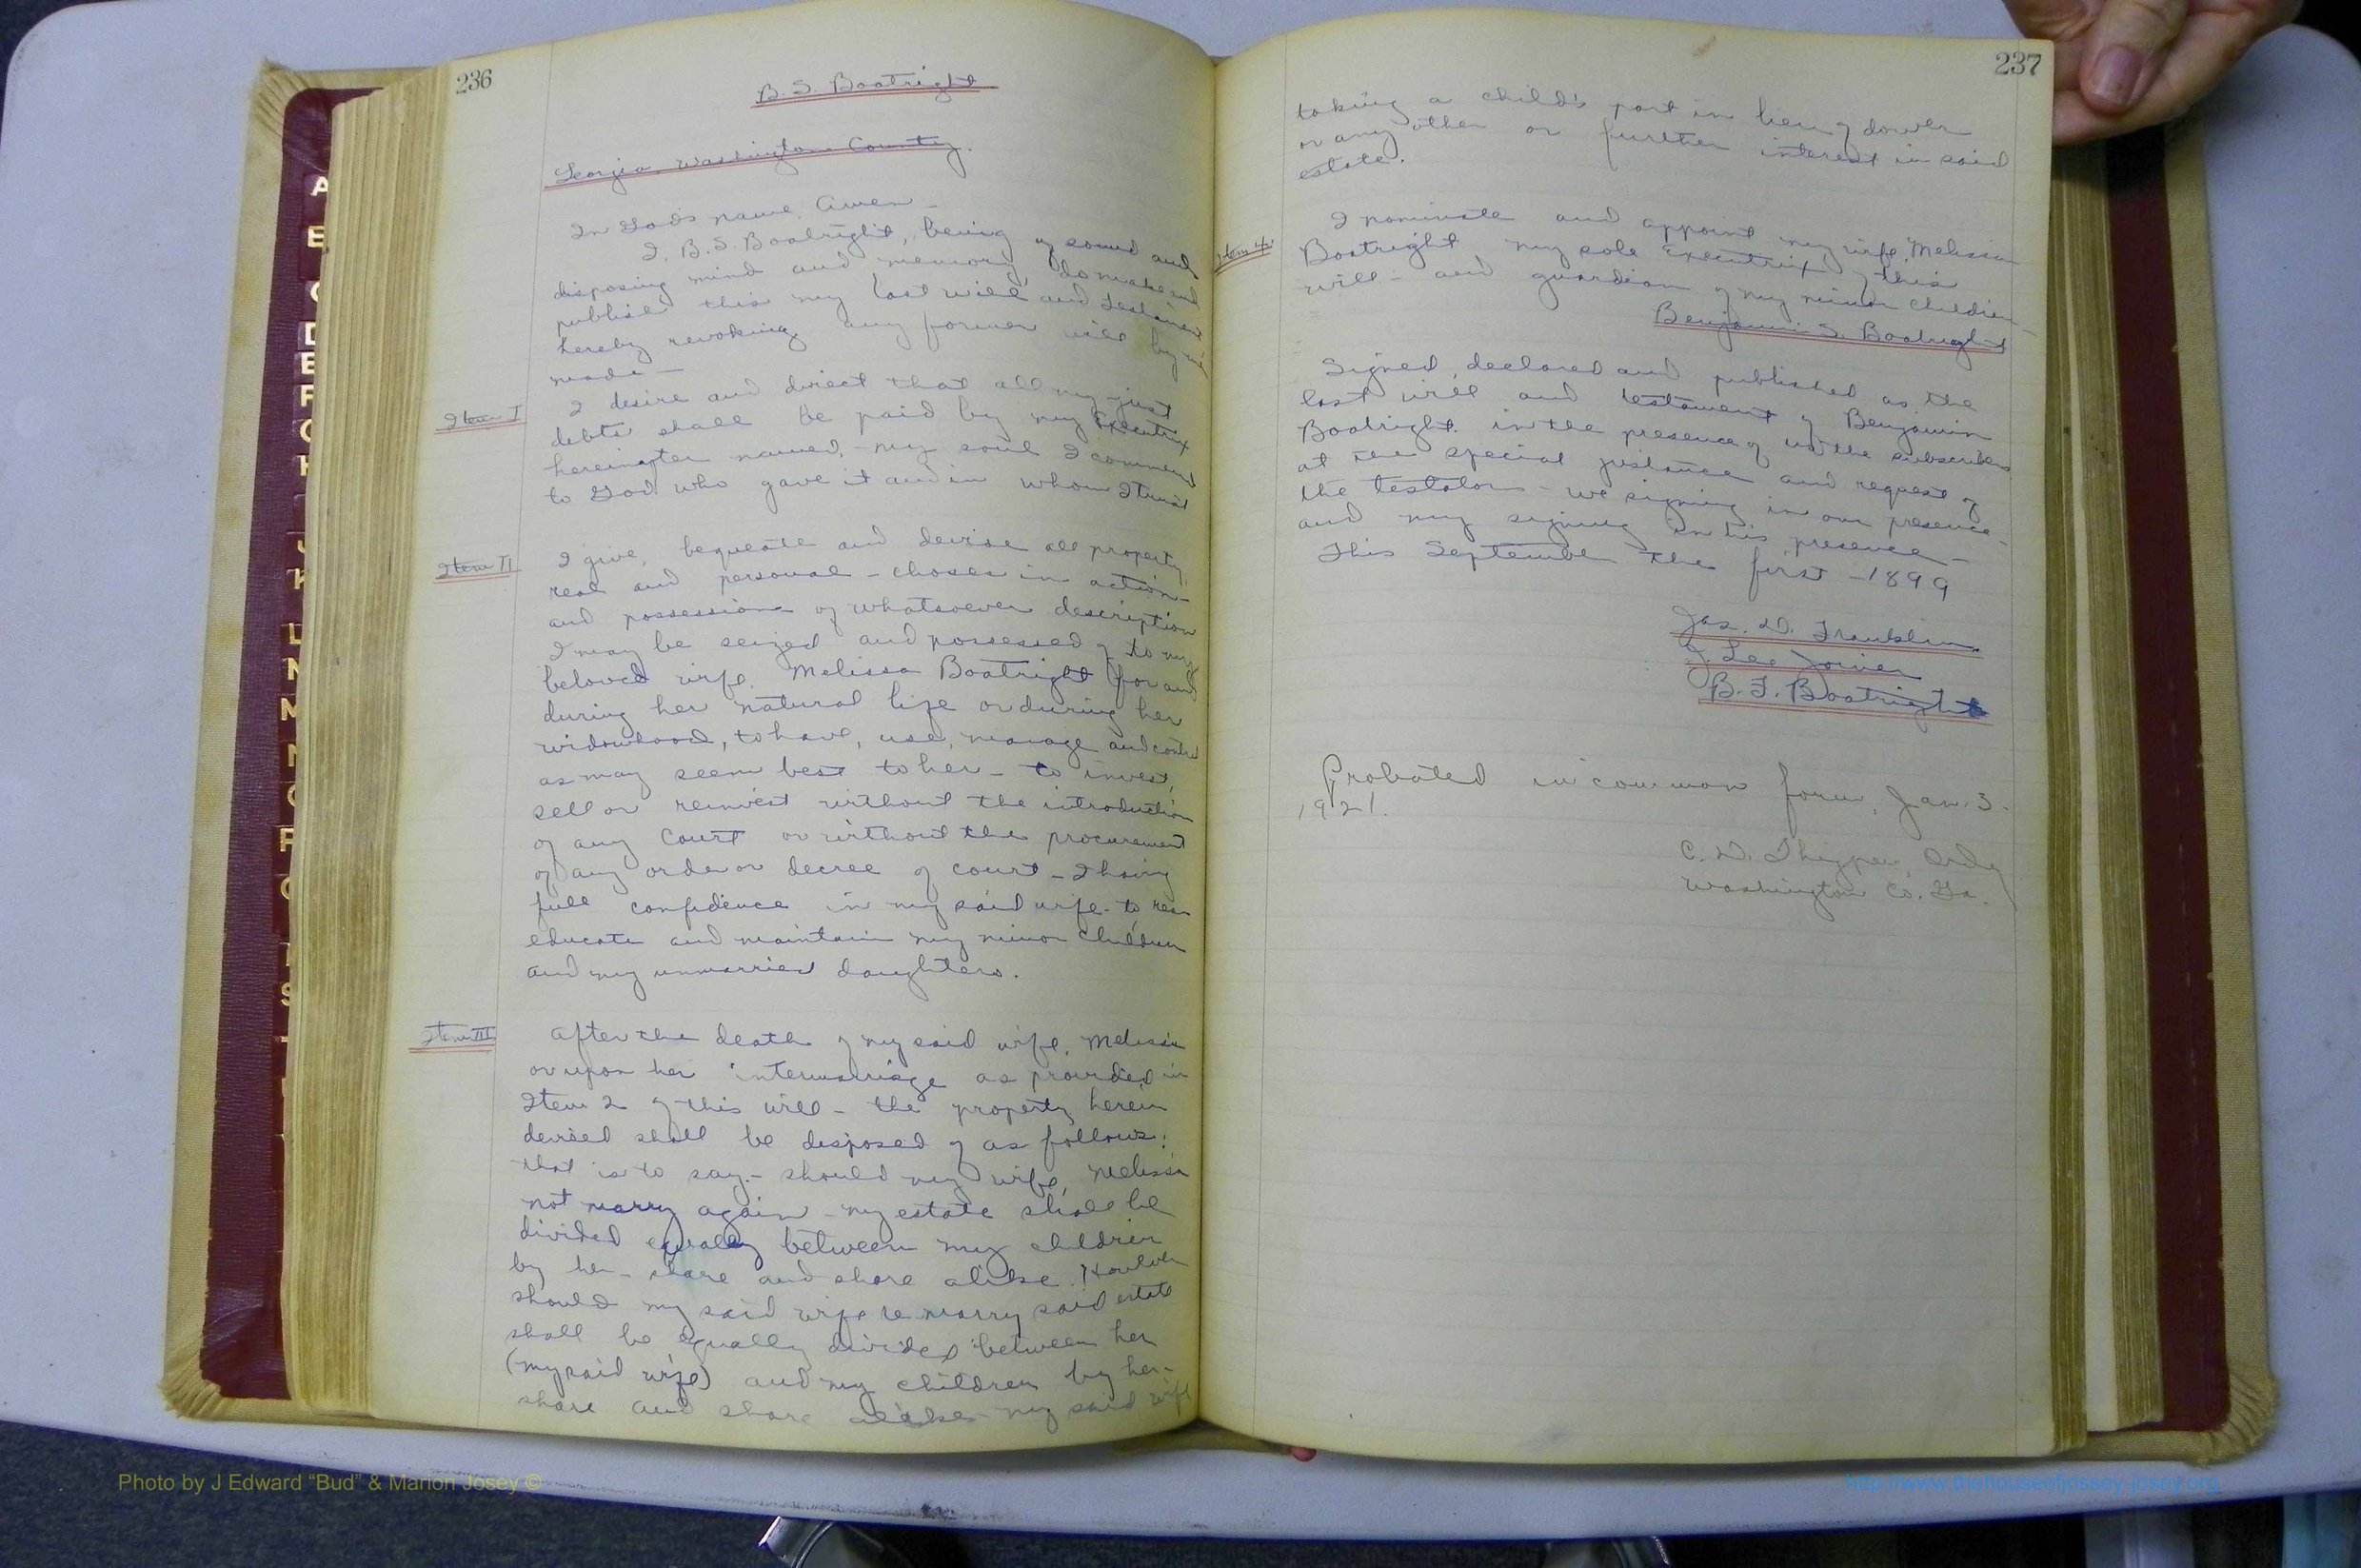 236
B. S. Boatright
Georgia, Washington County.
In God's name, Amen -
I, B. S. Boatright, being of sound and
disposing mind and memory, do make and
publish this my last will and testament
hereby revoking any former will by me
made -
Item I
I desire and direct that all my just
debts shall be paid by my Executrix
hereinafter named, - my soul I commend
to God who gave it and in whom I trust
Item II
I give, bequeath and devise all property,
real and personal - choses in action -
and possessions of whatsoever description
I may be seized and possessed of to my
beloved wife, Melissa Boatright for and
during her natural life or during her
widowhood, to have, use, manage and control
as may seem best to her - to invest,
sell or reinvest without the introduction
of any Court or without the procurement
of any order or decree of court - I having
full confidence in my said wife - to rear
educate and maintain my minor children
and my unmarried daughters.
Item III
After the death of my said wife, Melissa
or upon her intermarriage as provided in
Item 2 of this will - the property herein
devised shall be disposed of as follows:
that is to say - should my wife, Melissa
not marry again - my estate shall be
divided equally between my children
by her - share and share alike. However
should my said wife re marry said estate
shall be equally divided between her
(my said wife) and my children by her -
share and share alike - my said wife
237
taking a child's part in lieu of dower
or any other or further interest in said
estate.
Item 4.
I nominate and appoint my wife, Melissa
Boatright my sole Executrix of this
will - and guardian of my minor children -
Benjamin S. Boatright
Signed, declared and published as the
last will and testament of Benjamin
Boatright in the presence of us the subscribers
at the special instance and request of
the testator - we signing in our presence -
and my signing in his presence -
This September the first - 1899
Jas. D. Franklin
J. Lee Joiner
B. F. Boatright
Probated in common form, Jan. 3.
1921.
C. D. Thigpen, Ordy
Washington Co. Ga.
Photo by J Edward “Bud” & Marion Josey ©
http://www.thehouseofjossey-josey.org